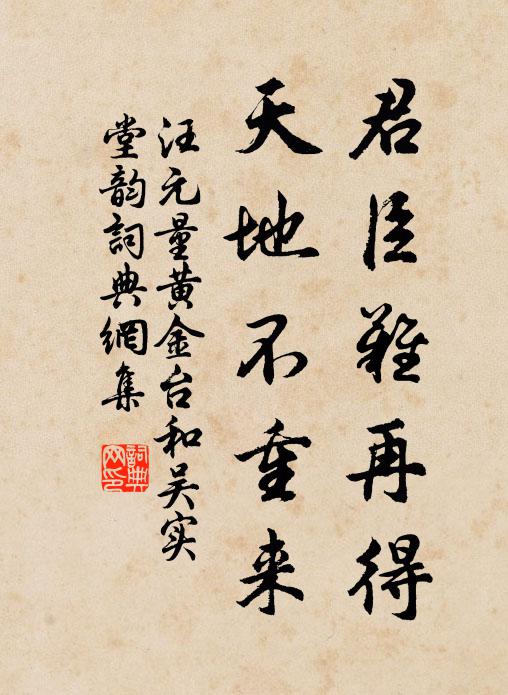 君臣難再得
天地不重来
汪元量黄金台和吴实
堂韵詞典網集
詞典网印